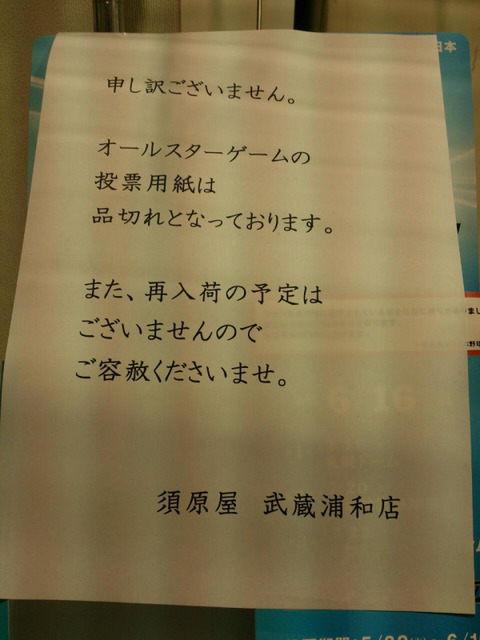 申し訳ございません。
オールスターゲームの
投票用紙は
品切れとなっております。
また、再入荷の予定は
ございませんので
ご容赦くださいませ。
須原屋 武蔵浦和店
日本